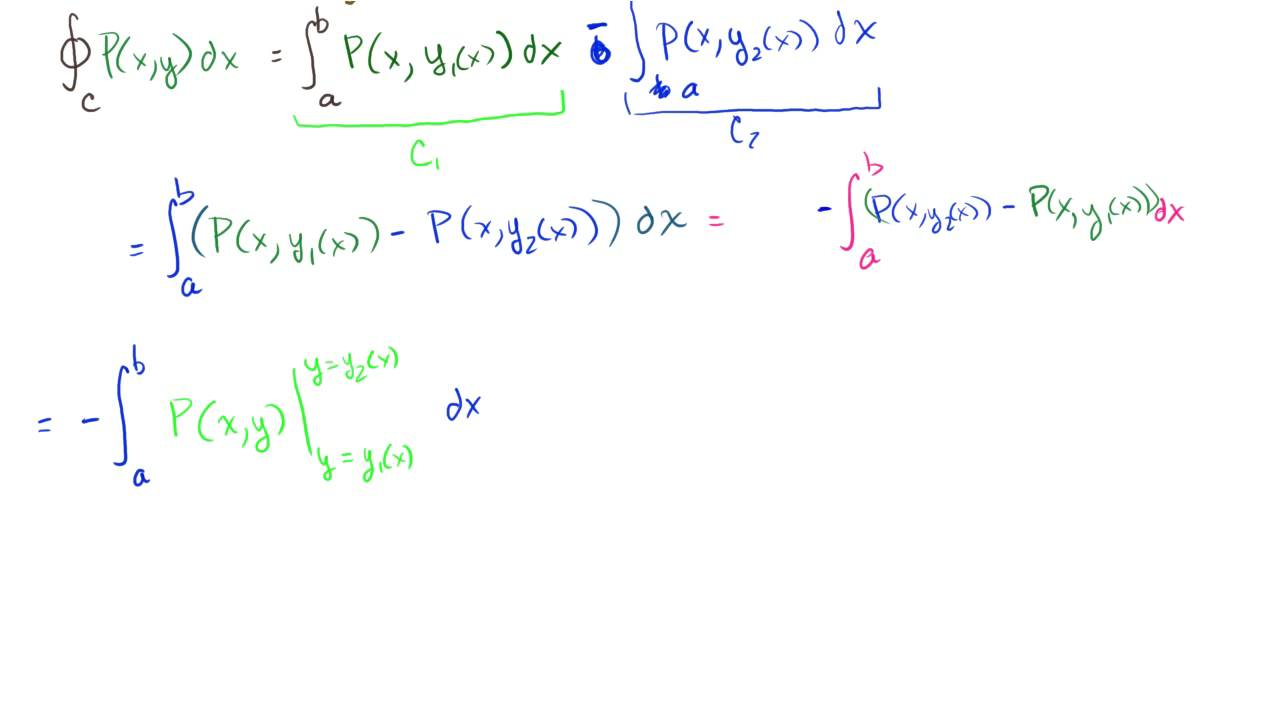 ∮_C P(x,y)dx = ∫_a^b P(x, y₁(x))dx - ∫_a P(x, y₂(x)) dx
C₁ C₂
= ∫_a^b (P(x, y₁(x)) - P(x, y₂(x))) dx = - ∫_a^b (P(x, y₂(x)) - P(x, y₁(x)))dx
= - ∫_a^b P(x,y) |_{y = y₁(x)}^{y = y₂(x)} dx